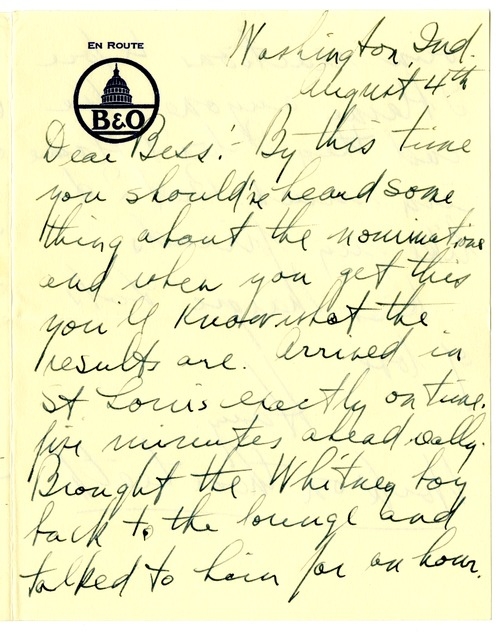 EN ROUTE
B&O
Washington, Ind.
August 4th
Dear Bess:- By this time
you should've heard some
thing about the nominations
and when you get this
you'll know what the
results are. Arrived in
St Louis exactly on time.
five minutes ahead really.
Brought the Whitney boy
back to the lounge and
talked to him for an hour.